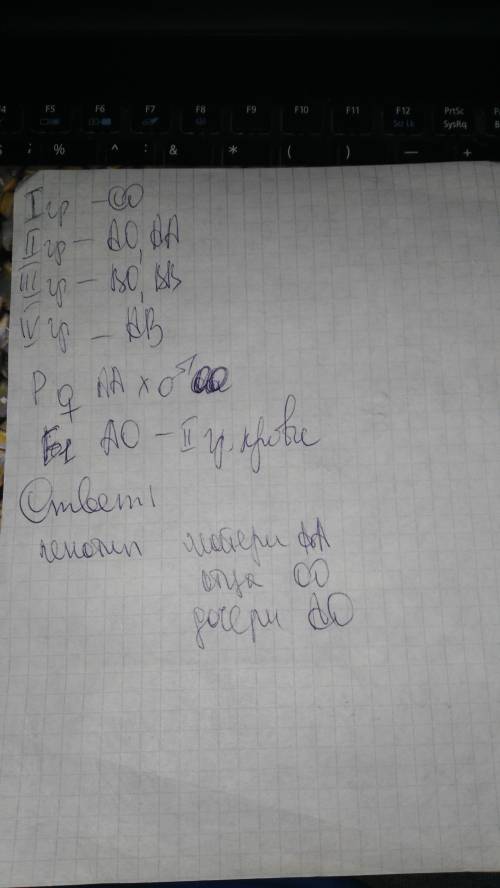 F4 F5 F6 F7 F8 F9 F10 F11 F12 PrtSc
Scr Lk SysRq
$ ; % ^ : & * ( ) — +
I гр – OO
II гр – AO, AA
III гр – BO, BB
IV гр – AB
P ♀ AA x ♂ OO
F1 AO – II гр. крови
Ответ:
генотип матери AA
отца OO
дочери AO